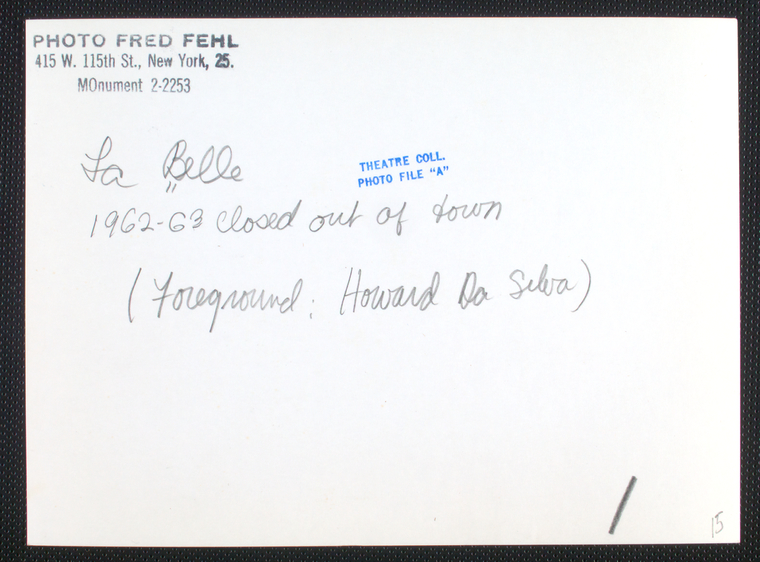 PHOTO FRED FEHL
415 W. 115th St., New York, 25.
MOnument 2-2253
La Belle
THEATRE COLL.
PHOTO FILE "A"
1962-63 closed out of town
(Foreground: Howard Da Silva)
15